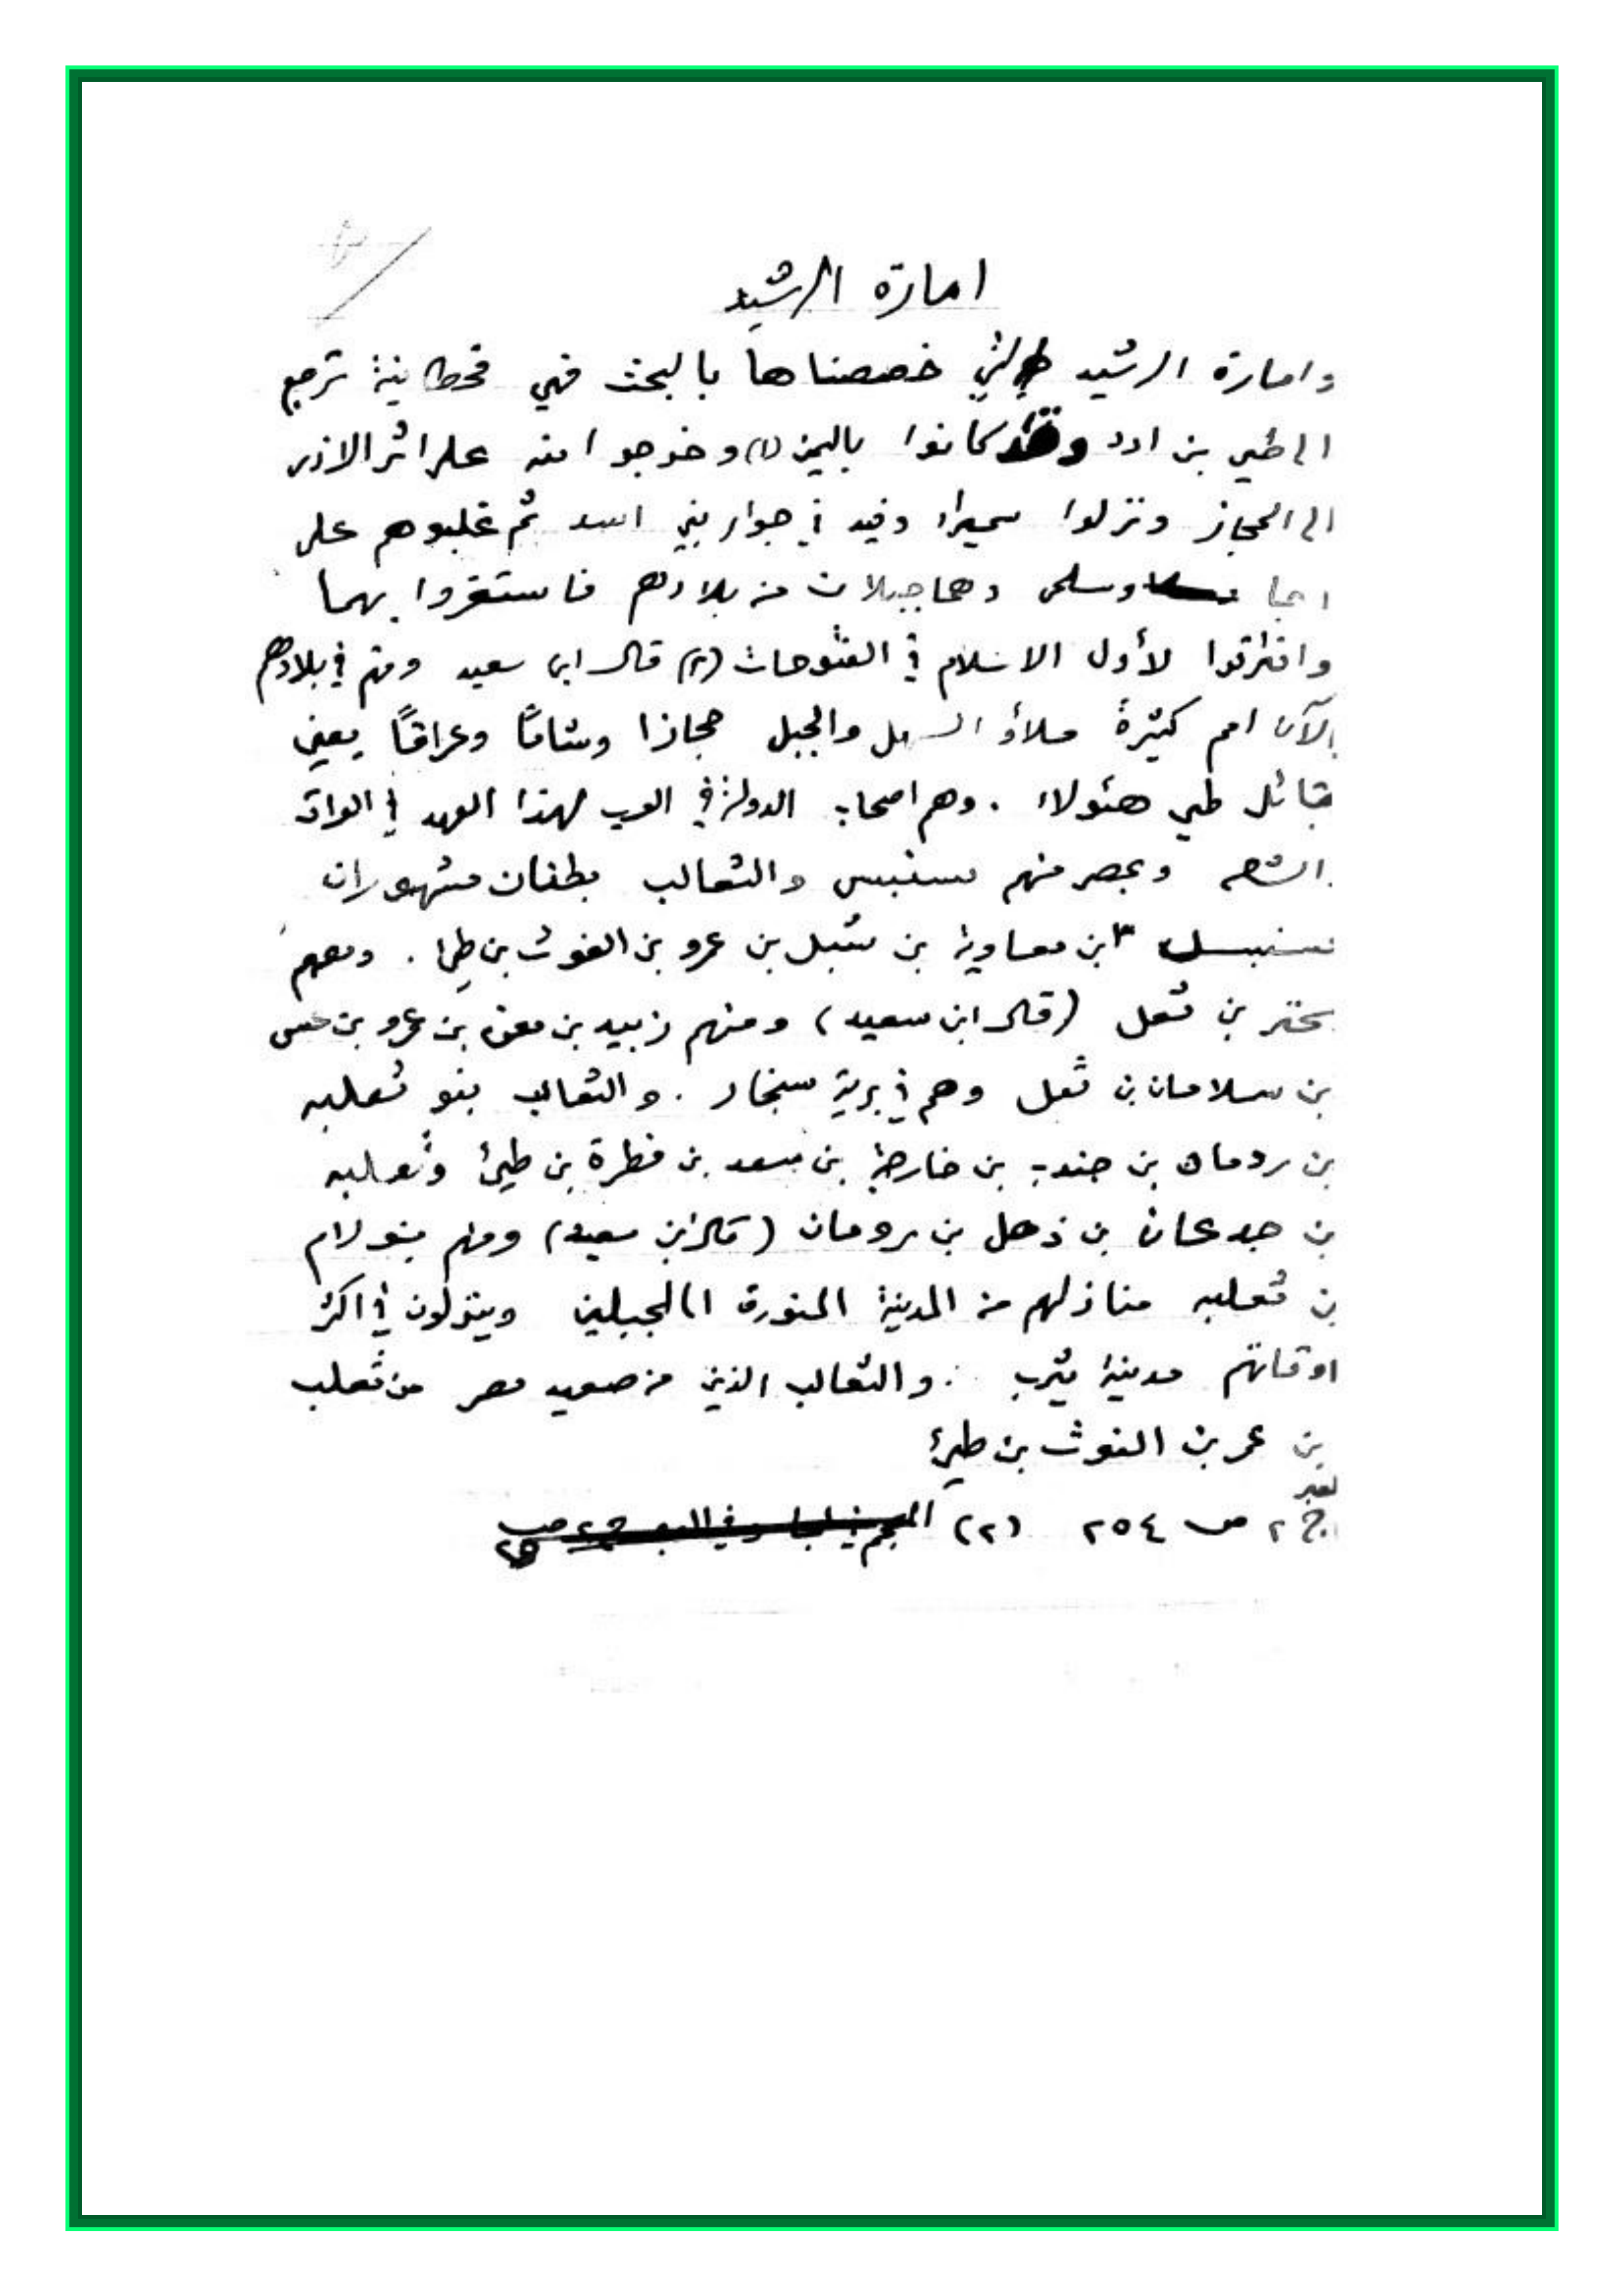 امارة الرشيد
وامارة الرشيد التي خصصناها بالبحث فهي قحطانية ترجع
الى طي بن ادد وقد كانوا باليمن (١) وخرجوا منه على اثر الازد
الى الحجاز ونزلوا سميراء وفيد في جوار بني اسد ثم غلبوهم على
اجا وسلمى وهما جبلان من بلادهم فاستقروا بهما
وافترقوا لأول الاسلام في الفتوحات (٢) قال ابن سعيد ومنهم في بلادهم
الآن امم كثيرة ملأوا السهل والجبل حجازا وشاماً وعراقاً يعني
قبائل طي هئولاء . وهم اصحاب الدولة في العرب لهذا العهد في العراق
الشام وبمصر منهم سنبس والثعالب بطنان مشهوران
سنبس ابن معاوية بن شبل بن عمرو بن الغوث بن طي . ومعهم
بحتر بن ثعل (قال ابن سعيد) ومنهم زبيد بن معن بن عمرو بن عس
بن سلامان بن ثعل وهم في برية سنجار . والثعالب بنو ثعلبه
بن رومان بن جندب بن خارجة بن سعد بن فطرة بن طيئ وثعلبه
بن جدعان بن ذهل بن رومان (قال ابن سعيد) ومنهم بنو لام
بن ثعلبه منازلهم من المدينة المنورة الى الجبلين وينزلون في اكثر
اوقاتهم مدينة يثرب . والثعالب الذين من صعيد مصر من ثعلب
بن عمر بن الغوث بن طيئ
ج ٢ ص ٢٥٤ (٢)